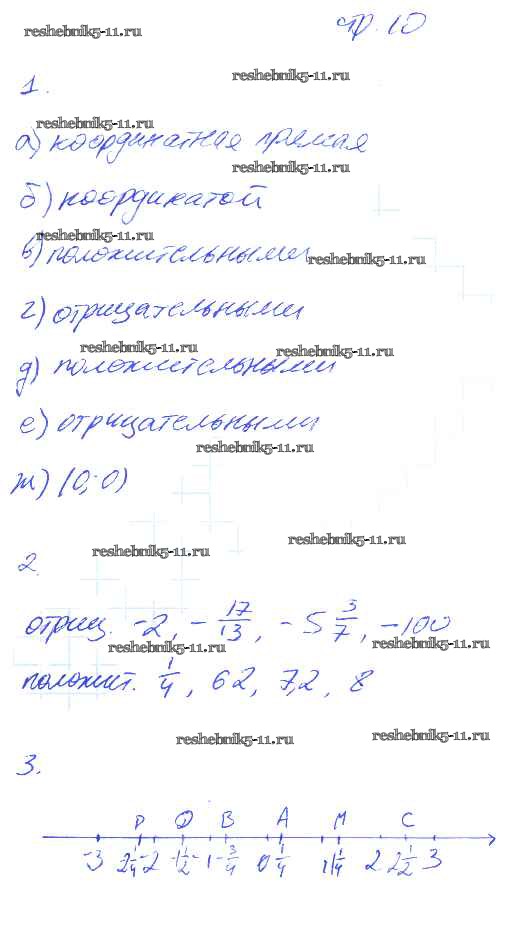 reshebnik5-11.ru
стр. 10
reshebnik5-11.ru
1.
reshebnik5-11.ru
а) координатная прямая
reshebnik5-11.ru
б) координатой
reshebnik5-11.ru
в) положительными
reshebnik5-11.ru
г) отрицательными
reshebnik5-11.ru reshebnik5-11.ru
д) положительными
е) отрицательными
reshebnik5-11.ru
ж) (0; 0)
reshebnik5-11.ru
reshebnik5-11.ru
2.
отриц. -2, -17/13, -5 3/7, -100
reshebnik5-11.ru reshebnik5-11.ru
положит. 1/4, 62, 7,2, 8
reshebnik5-11.ru reshebnik5-11.ru
3.
P Q B A M C
-3 2 1/4 -2 -1 1/2 -1 -3/4 0 1/4 1 1 1/4 2 2 1/2 3